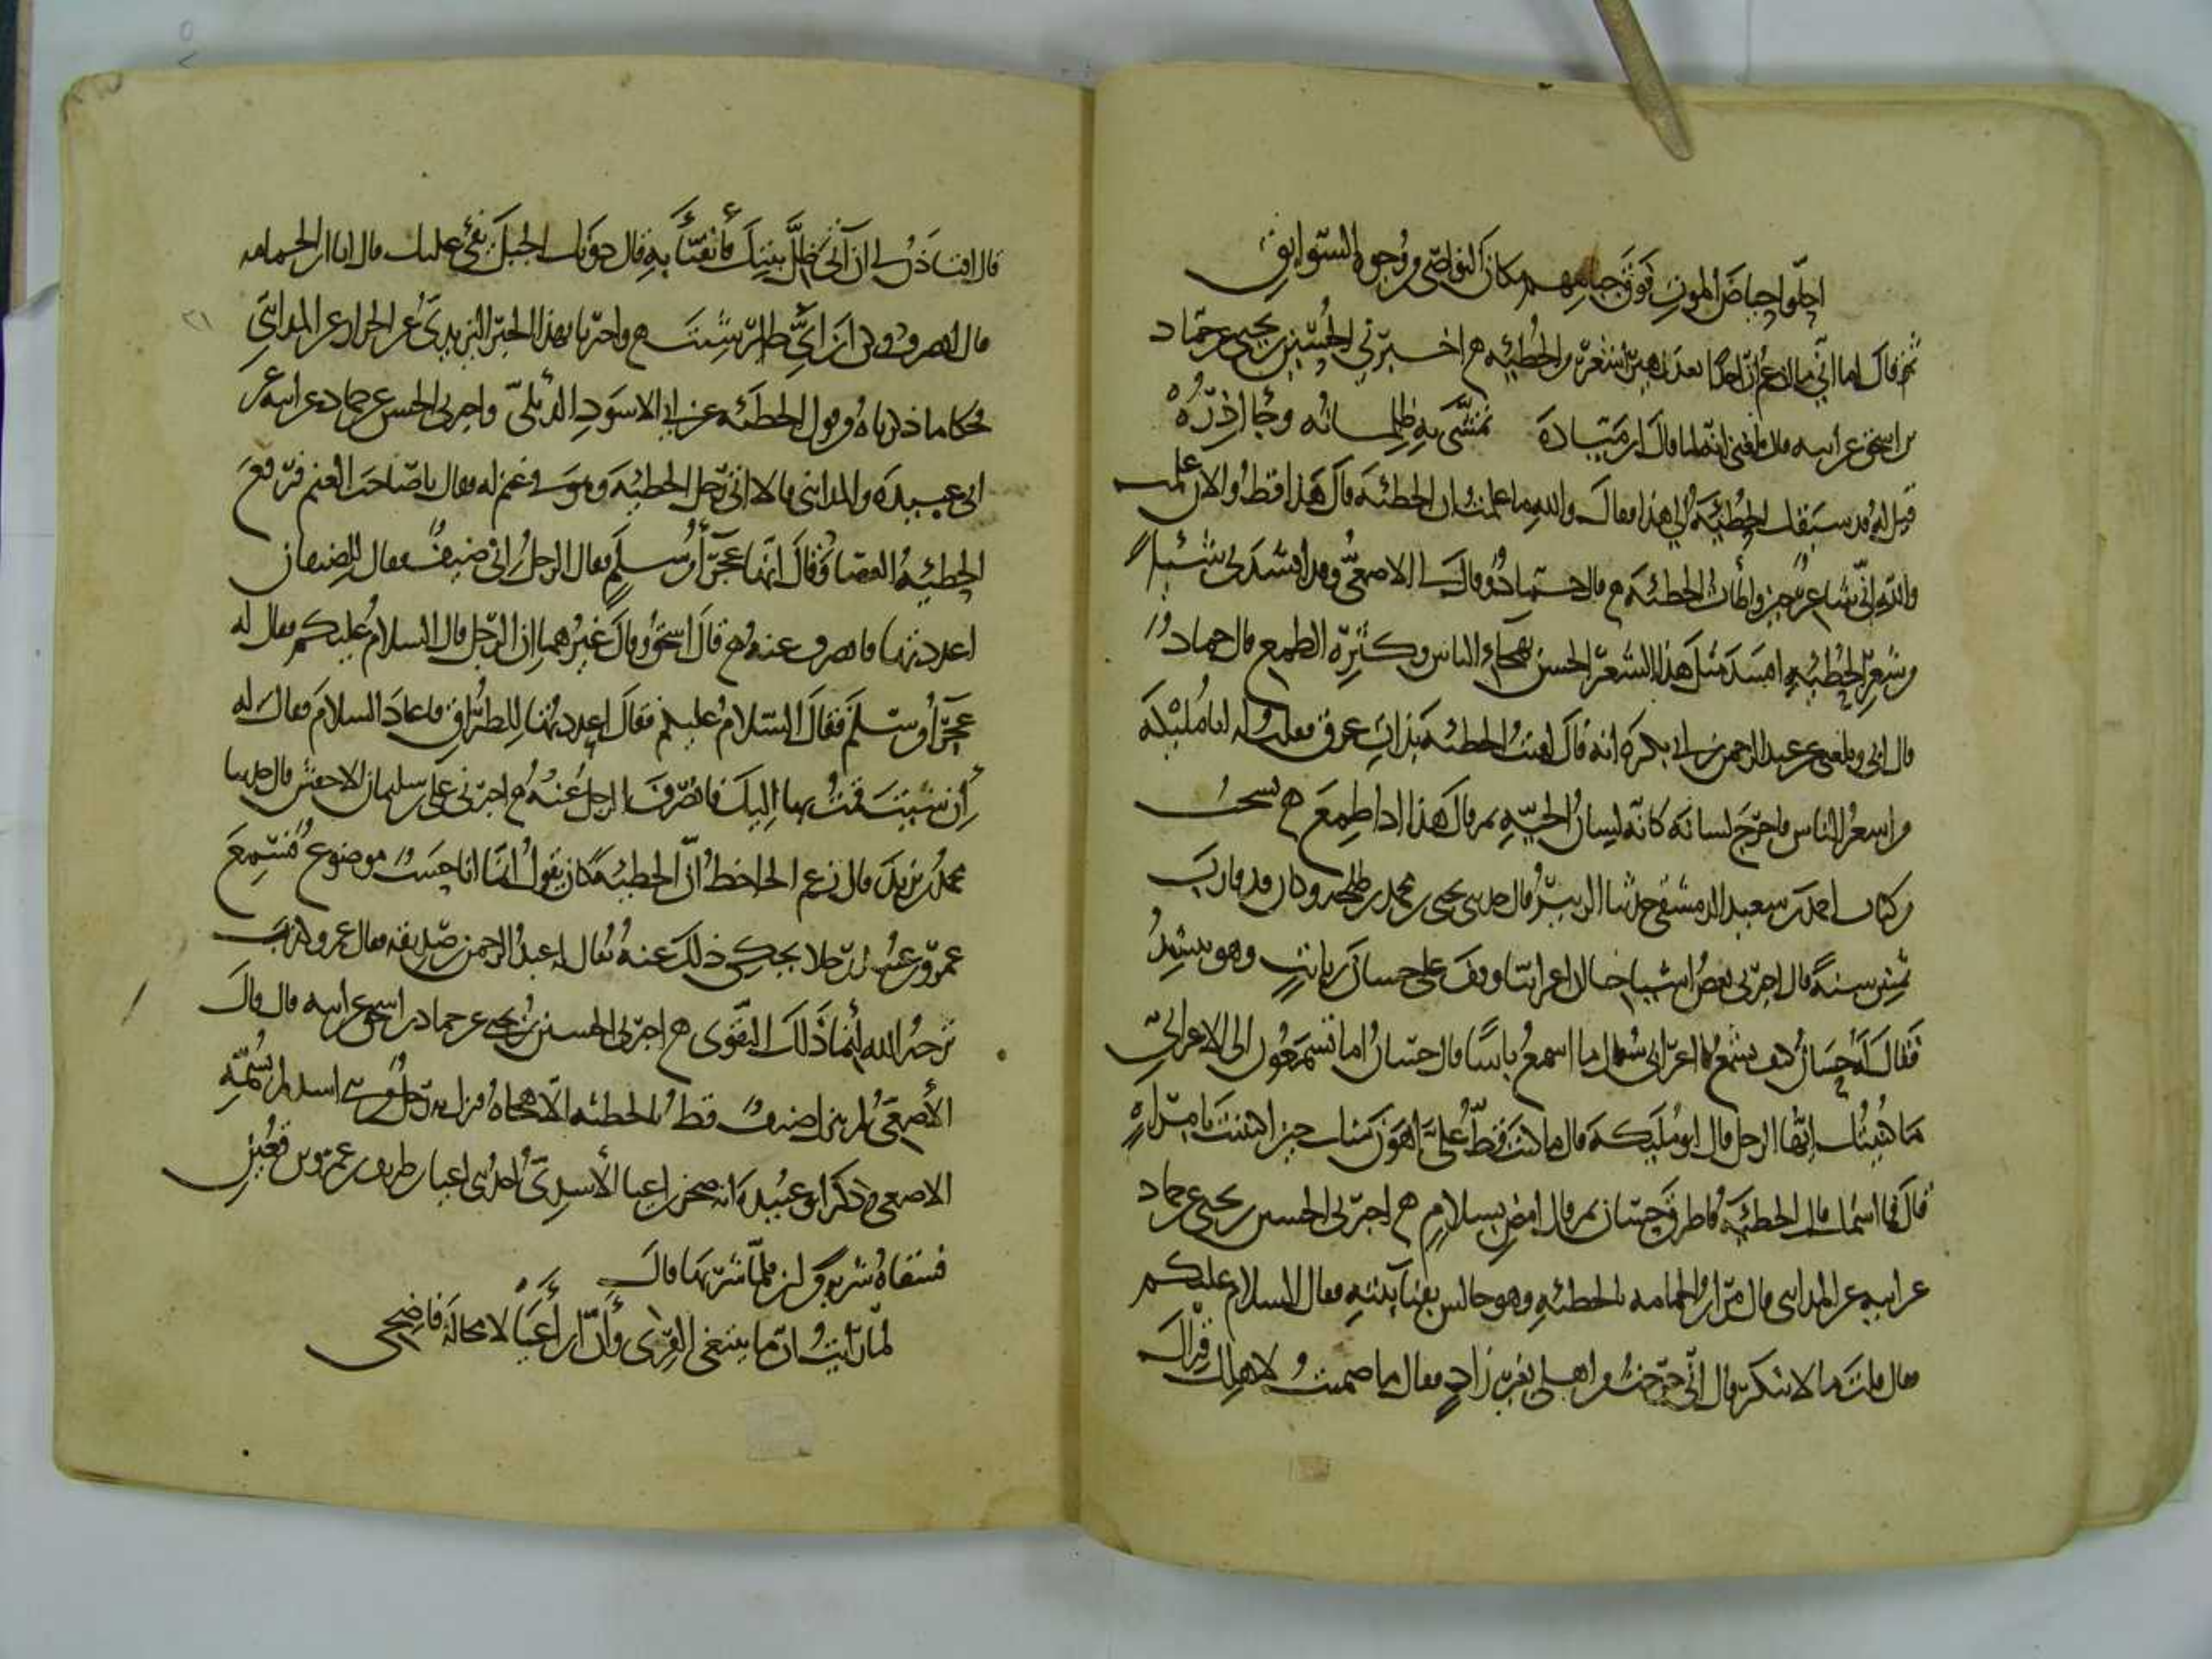 احلّوا حياض الموت فوق جباههم مكان النواصي من وجوه السوابق
ثم قال اما اني ما ازعم ان احدا بعد زهير اشعر من الحطيئة اخبرني الحسين بن يحيى عن حماد
بن اسحق عن ابيه قال بلغني انه لما قال ابن ميادة تمشي به ظلمانه وجاذره
قيل له قد سبقك الحطيئة الى هذا فقال والله ما علمت ان الحطيئة قال هذا قط والان علمت
والله اني شاعر حين واطأت الحطيئة قال حماد وقال لي الاصمعي وقد انشدني شيئا
من شعر الحطيئة افسد مثل هذا الشعر الحسن بهجاء الناس وكثرة الطمع قال حماد
قال ابي وبلغني عن عبد الرحمن بن ابي بكرة انه قال لقيت الحطيئة بذات عرق فقلت له ابا مليكة
من اشعر الناس فاخرج لسانه كانه لسان الحية ثم قال هذا اذا طمع نسخت
من كتاب احمد بن سعيد الدمشقي حدثنا الزبير قال حدثني يحيى بن محمد بن طلحة وكان قد قارب
ثمنين سنة قال اخبرني بعض اشياخنا ان اعرابيا وقف على حسان بن ثابت وهو ينشد
فقال له حسان كيف تسمع يا اعرابي فقال ما اسمع باسا قال حسان اما تسمعون الى الاعرابي
ما كنيتك ايها الرجل قال ابو مليكة قال ما كنت قط علي اهون منك حين اكتنيت بامراه
قال فما اسمك قال الحطيئة فاطرق حسان ثم قال امض بسلام اخبرني الحسين بن يحيى عن حماد
عن ابيه عن المدايني قال مر ابن الحمامة بالحطيئة وهو جالس بفناء بيته فقال السلام عليكم
فقال قلت ما لا ينكر قال اني خرجت من اهلي بغير زاد فقال ما ضمنت لاهلك قراك
قال افتاذن لي ان آتي ظل بيتك فاتفيا به قال دونك الجبل يفئ عليك قال انا ابن الحمامة
قال انصرف وكن ابن اي طائر شئت واخبرنا بهذا الخبر اليزيدي عن الخراز عن المدايني
فحكا ما ذكرناه من قول الحطيئة عن ابي الاسود الدئلي واخبرني الحسين عن حماد عن ابيه عن
ابي عبيدة والمدايني قالا اتى رجل الحطيئة وهو في غنم له فقال يا صاحب الغنم فرفع
الحطيئة العصا وقال انها عجراء من سلم فقال الرجل اني ضيف فقال للضيفان
اعددتها فانصرف عنه قال اسحق وقال غيرهما ان الرجل قال السلام عليكم فقال له
عجراء من سلم فقال السلام عليكم فقال اعددتها للطراق فاعاد السلام فقال له
إن شئت قمت بها اليك فانصرف الرجل عنه اخبرني علي بن سليمان الاخفش قال حدثنا
محمد بن يزيد قال زعم الجاحظ ان الحطيئة كان يقول انما انا حسب موضوع فسمع
عمرو بن عبيد رجلا يحكي ذلك عنه يقال له عبد الرحمن صديقة فقال عمرو كذب
ترحه الله انما ذلك التقوى اخبرني الحسين بن يحيى عن حماد بن اسحق عن ابيه قال قال
الأصمعي لم ينزل ضيف قط بالحطيئة الا هجاه فنزل به رجل من بني اسد لم يسمه
الاصمعي وذكر ابو عبيدة انه صخر بن اعيا الأسدي احد بني اعيا بن طريف بن عمرو بن قعين
فسقاه شربة من لبن فلما شربها قال
لما رأيت ان من يبتغي القرى وأن ابن أعيا لا محالة فاضحي